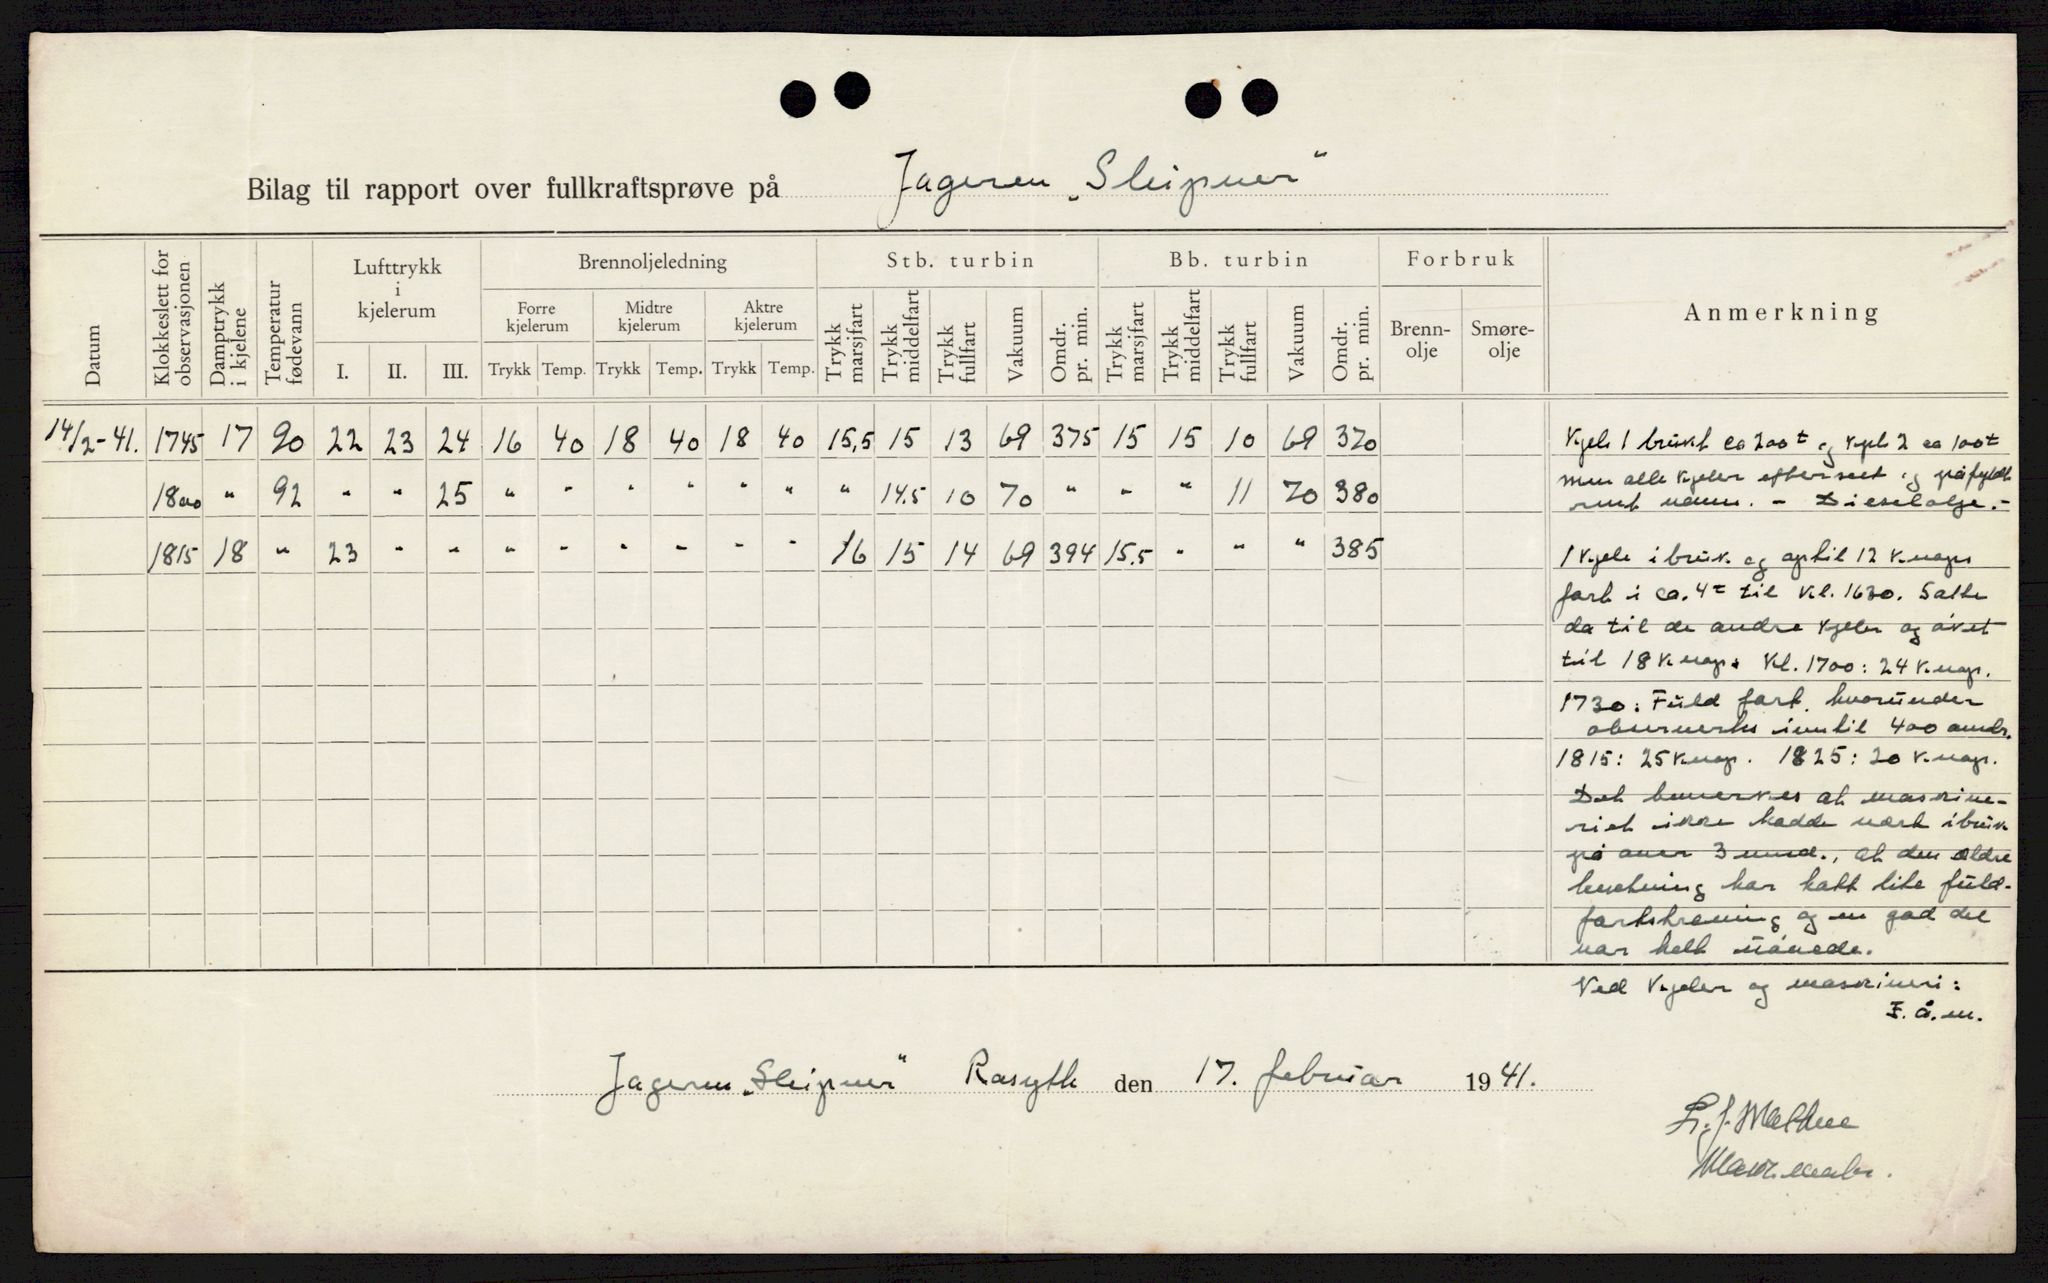 Bilag til rapport over fullkraftsprøve på Jageren „Sleipner“
Datum
Klokkeslett for observasjonen
Damptrykk i kjelene
Temperatur fødevann
Lufttrykk i kjelerum
I. II. III.
Brennoljeledning
Forre kjelerum Midtre kjelerum Aktre kjelerum
Trykk Temp. Trykk Temp. Trykk Temp.
Stb. turbin
Trykk marsjfart
Trykk middelfart
Trykk fullfart
Vakuum
Omdr. pr. min.
Bb. turbin
Trykk marsjfart
Trykk middelfart
Trykk fullfart
Vakuum
Omdr. pr. min.
Forbruk
Brenn-
olje
Smøre-
olje
Anmerkning
14/2-41. 1745 17 90 22 23 24 16 40 18 40 18 40 15,5 15 13 69 375 15 15 10 69 370
1800 " 92 " " 25 " " " " " " " 14.5 10 70 " " " 11 70 380
1815 18 " 23 " " " " " " " " 16 15 14 69 394 15.5 " " " 385
Kjele 1 brukt ca 200t og kjele 2 ca 100t
men alle kjeler efterseet og påfyldt
rent vann. - Dieselolje. -
1 kjele i bruk og optil 12 knops
fart i ca. 4t til kl. 1630. Satte
da til de andre kjeler og øket
til 18 knop. Kl. 1700: 24 knop.
1730: Fuld fart, hvorunder
observertes inntil 400 omdr.
1815: 25 knop. 1825: 20 knop.
Det bemerkes at maskine-
riet ikke hadde vært i bruk
på over 3 mnd., at den ældre
besetning har hatt lite fuld-
fartstrening og en god del
var helt uøvede.
Ved kjeler og maskineri:
I. å. m.
Jageren „Sleipner“ Rosyth den 17. februar 1941.